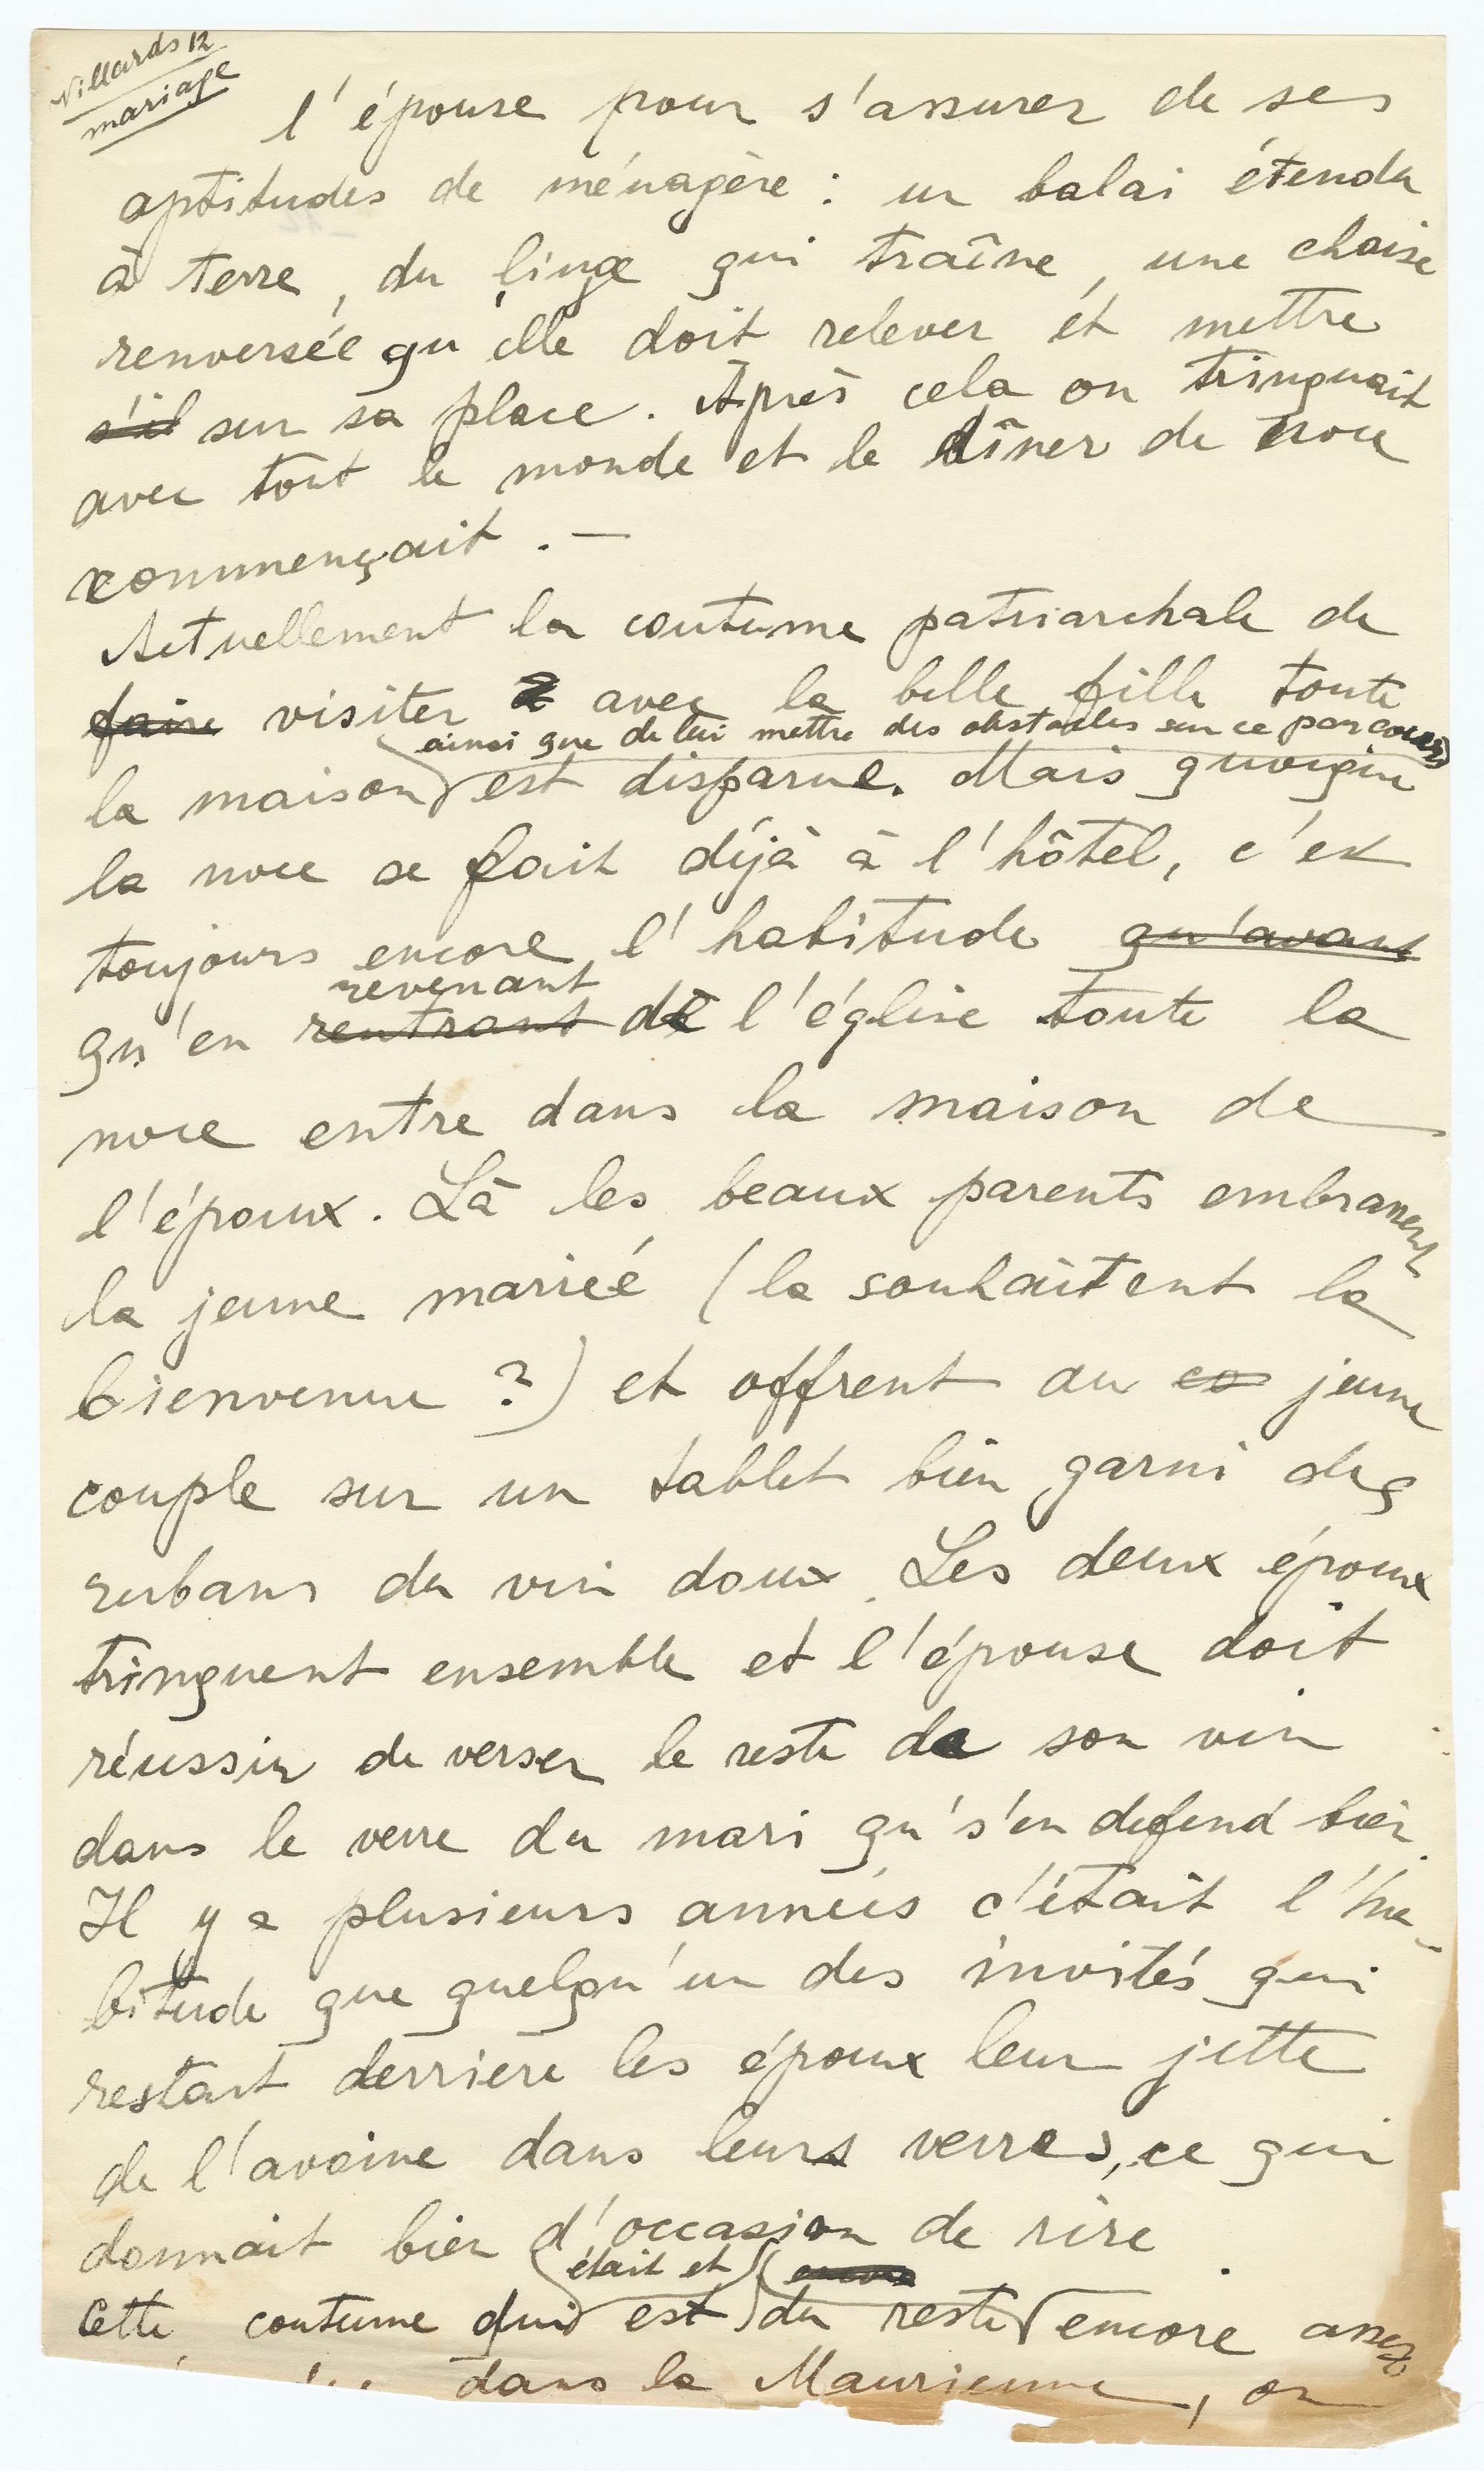 Villards 12
mariage
l'épouse pour s'assurer de ses
aptitudes de ménagère : un balai étendu
à terre, du linge qui traîne, une chaise
renversée qu'elle doit relever et mettre
s'il sur sa place. Après cela on trinquait
avec tout le monde et le dîner de noce
commençait. —
Actuellement la coutume patriarchale de
faire visiter avec la belle fille toute
ainsi que de lui mettre des obstacles sur ce parcours
la maison est disparue. Mais quoique
la noce se fait déjà à l'hôtel, c'est
toujours encore l'habitude qu'avant
revenant
qu'en rentrant de l'église toute la
noce entre dans la maison de
l'époux. Là les beaux parents embrassent
la jeune mariée (la souhaitent la
bienvenue ?) et offrent au co jeune
couple sur un tablet bien garni des
rubans du vin doux. Les deux époux
trinquent ensemble et l'épouse doit
réussir de verser le reste de son vin
dans le verre du mari qu's'en defend bien.
Il y a plusieurs années c'était l'ha-
bitude que quelqu'un des invités qui
restait derrière les époux leur jette
de l'avoine dans leurs verres, ce qui
donnait bien d'occasion de rire.
était et encore
Cette coutume qui est du reste encore assez
dans la Maurienne, on